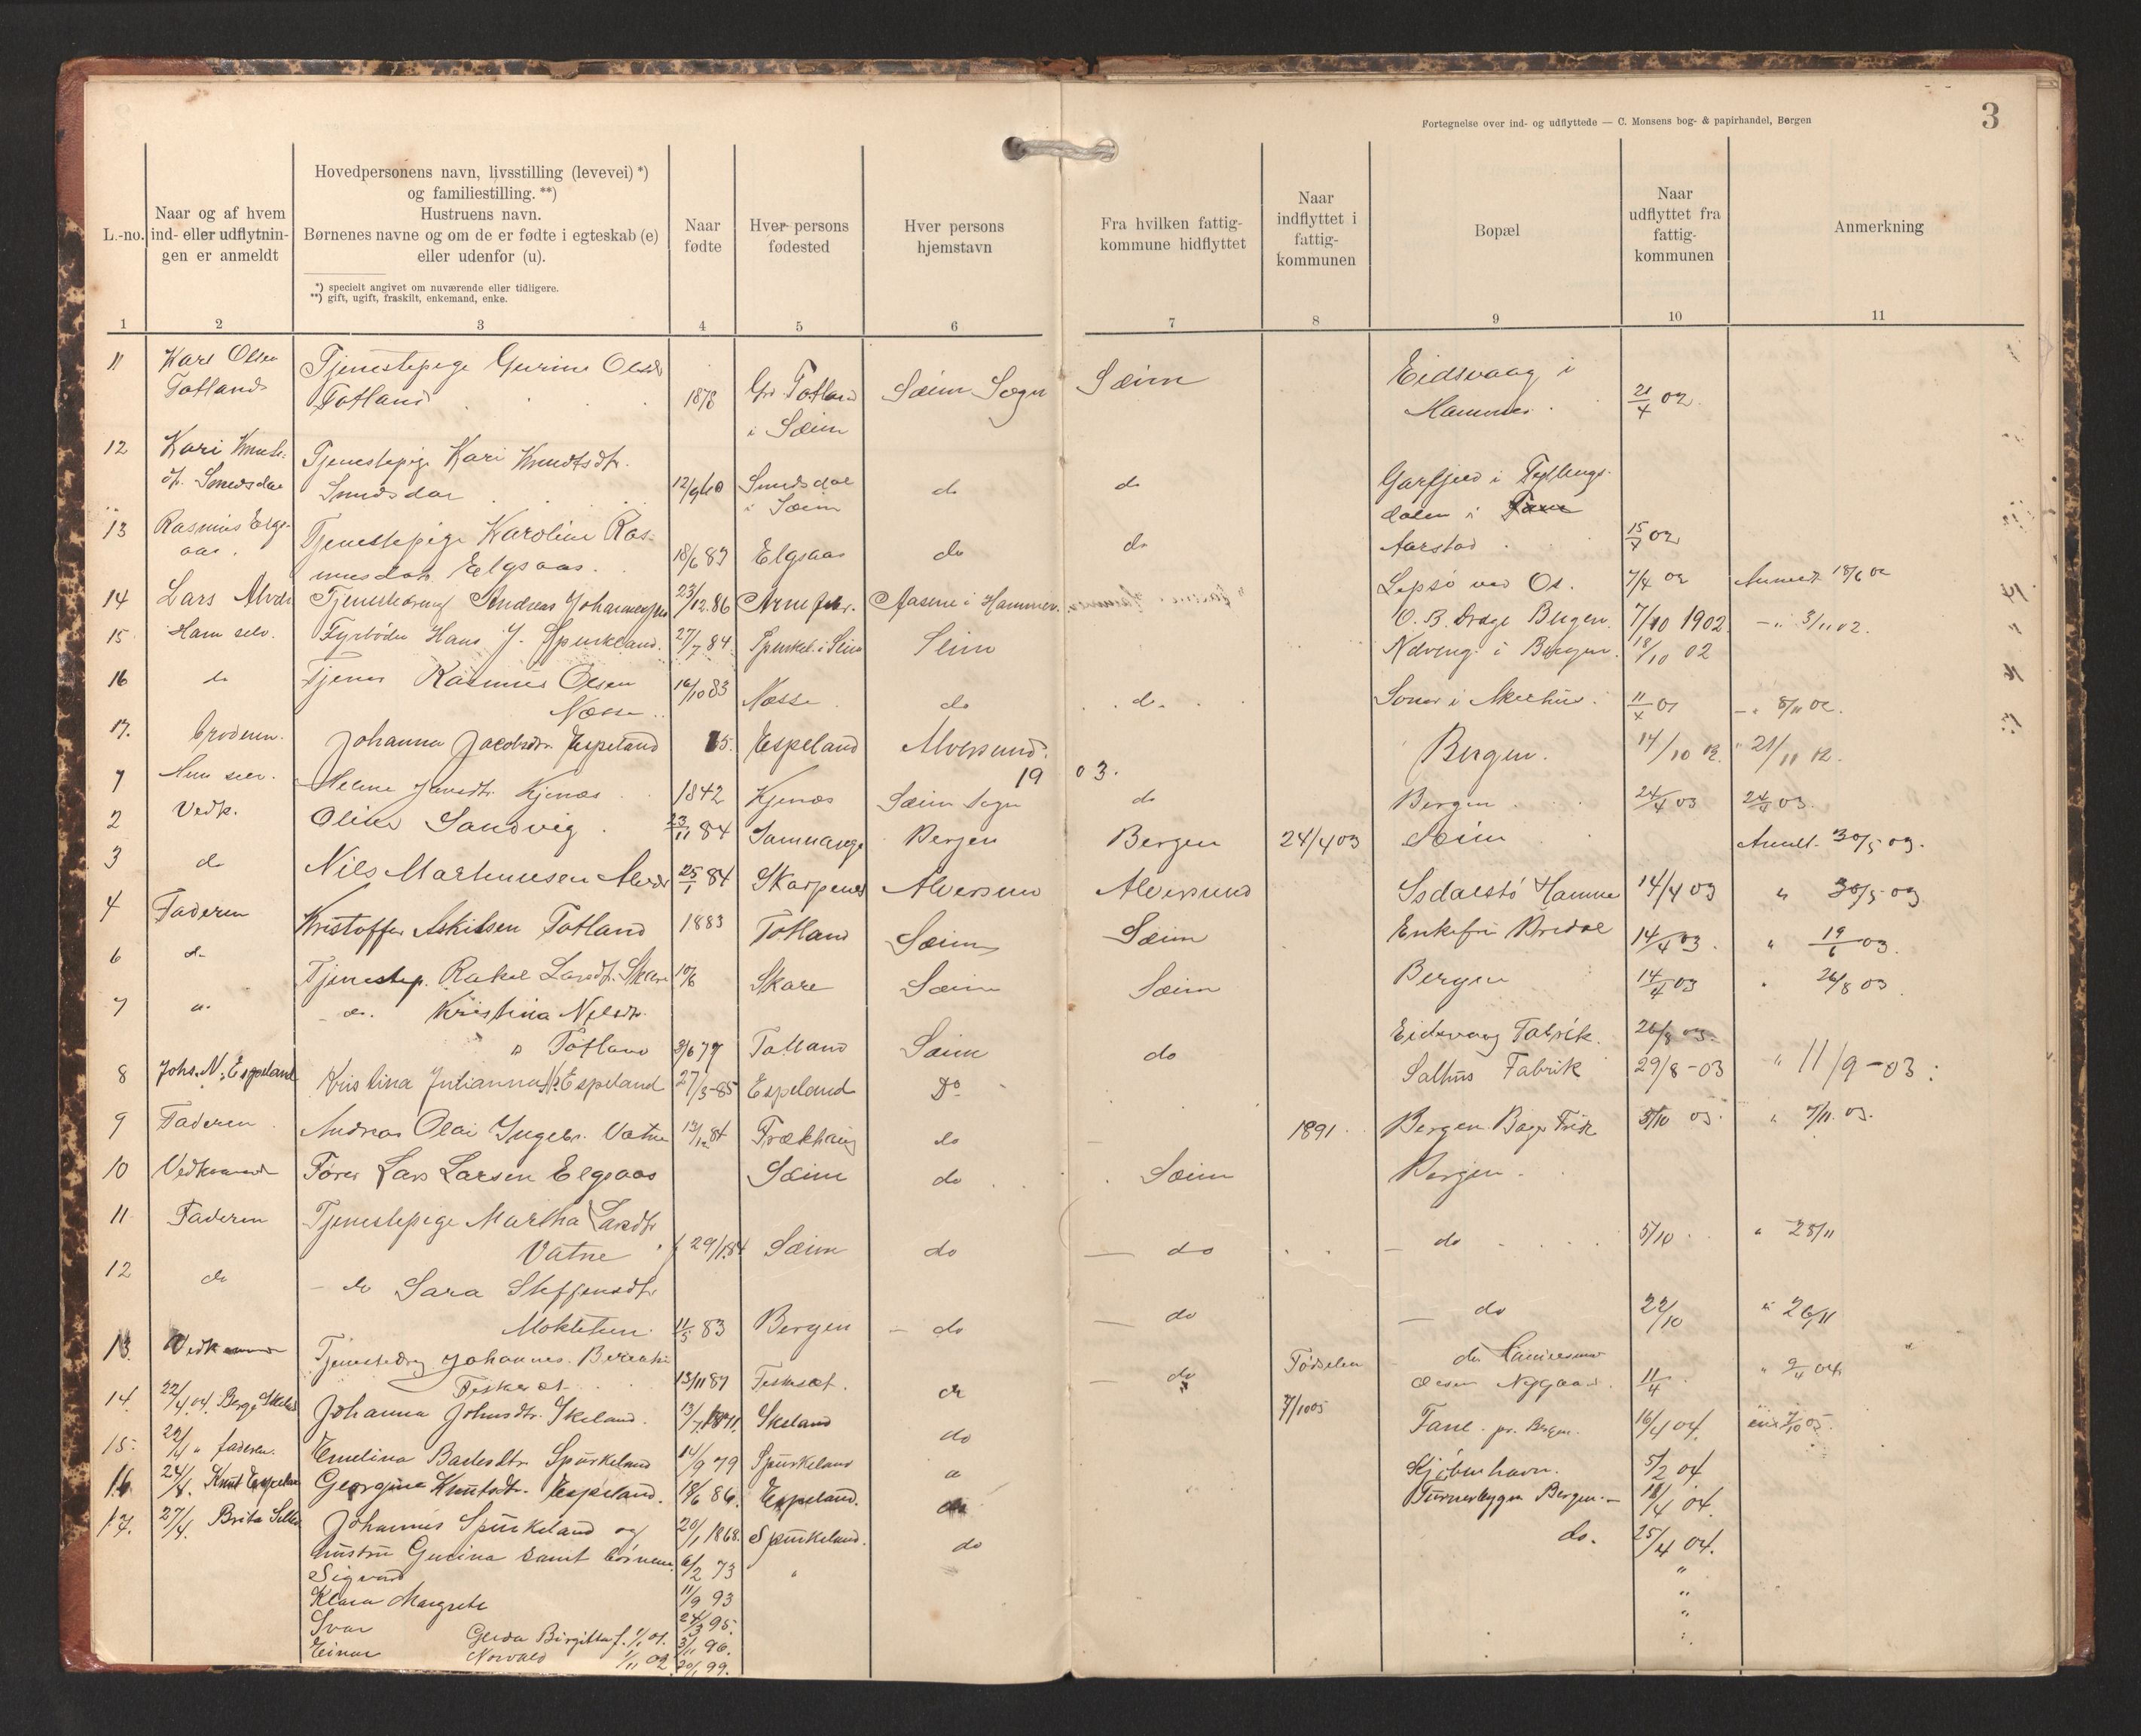 Fortegnelse over ind- og udflyttede — C. Monsens bog- & papirhandel, Bergen
3
L.-no.
Naar og af hvem
ind- eller udflytnin-
gen er anmeldt
Hovedpersonens navn, livsstilling (levevei) *)
og familiestilling. **)
Hustruens navn.
Børnenes navne og om de er fødte i egteskab (e)
eller udenfor (u).
*) specielt angivet om nuværende eller tidligere.
**) gift, ugift, fraskilt, enkemand, enke.
Naar
fødte
Hver persons
fødested
Hver persons
hjemstavn
Fra hvilken fattig-
kommune hidflyttet
Naar
indflyttet i
fattig-
kommunen
Bopæl
Naar
udflyttet fra
fattig-
kommunen
Anmerkning
1 2 3 4 5 6 7 8 9 10 11
11 Kari Olsen Tjenestepige Gurine Olsdr Eidsvaag i
Totland Totland 1878 Gr. Totland Sæim Sogn Sæim Hammer 21/4 02
i Sæim
12 Kari Knuts- Tjenestepige Kari Knudtsdtr.
Smedsdal 12/9 Smedsdal do do Garfjeld i
i Sæim dalen i Fane
13 Rasmus Elgs- Tjenestepige Karoline Ras-
aas musdtr. Elgsaas 18/6 83 Elgsaas do do Aarstad 15/7 02
14 Lars Tjenestedreng Andreas Johannessen 23/12 86 Aasene i Hammer Lepsø ved Os. 7/4 02 Anmeldt 18/6 02
15 Ham selv. Fyrbøder Hans J. Spurkland 27/7 84 Spurkel. i Seim Seim O. B. Drage Bergen 7/10 1902 — " 3/11 02
16 do Tjener Rasmus Olsen 16/10 83 Næsse do do i Bergen 18/10 02
Næsse 11/4 01 — " 8/11 02
17. Broderen. Johanna Jacobsdtr. Espeland 85. Espeland Alversund. Bergen. 14/10 02. " 21/11 02.
1903.
1 Hun selv. Helene Jansdtr. Kjenæs 1842 Kjenæs Sæim Sogn do Bergen 24/4 03 24/4 03
2 Vedk. Oline Sandvig 23/11 84 Samnanger Bergen Bergen 24/4 03 Sæim Anmeldt. 30/5 03.
3 do Nils Marthinusen 25/1 84 Skarpenes Alversund Alversund Isdalstø Hammer 14/4 03 " 30/5 03
4 Faderen Kristoffer Askilsen Totland 1883 Totland Sæim Sæim Enkefru 14/4 03. " 19/6 03.
6 do Tjenestep. Rakel Larsdtr. Skare Skare Sæim Sæim Bergen 14/4 03 " 26/8 03
7 do do. Kristina Nilsdtr.
Totland 3/6 77 Totland Sæim do Eidsvaag Fabrik. 26/8 03
8 Johs. N. Espeland Kristina Julianna N. Espeland 27/3-85 Espeland Do Salhus Fabrik 29/8-03 " 11/9-03
9 Faderen Andreas Olai Ingebr. Vatne 13/12 84 Frækhaug do 1891 Bergen 5/10 03 " 7/11 03.
10 Vedkommende Fører Lars Larsen Elgsaas Sæim do Sæim Bergen
11 Faderen Tjenestepige Martha Larsdtr.
Vatne f. 29/1 84 Sæim do — do — do 5/10 " 28/11
12 do — do Sara Steffensdtr.
11/5 83 Bergen — do — do — do 22/10 " 26/11
13. Vedkommende Tjenestedreng Johannes
Fiskeset 13/11 87 Fiskeset. do — do Fødselen do Nygaard 11/4 " 9/4 04
14. 22/4 04. Berge Skeland Johanna Johnsdtr. Skeland. 13/7 1871. Skeland do 7/10 05 Fane pr. Bergen. 16/4 04. 7/10 05
15. 22/4 " faderen. Emelina Spurkeland 14/9 79 Spurkeland do Kjøbenhavn. 5/2 04
16 24/4. Knut Espeland Georgine Knutsdtr. Espeland. 18/6 86. Espeland. do Bergen. 18/4 04.
17. 27/4. Brita Johannes Spurkeland og 20/1 1868. Spurkeland. do do. 25/4 04.
hustru Gurina samt børnene 6/2 73 "
Sigvard 11/9 93 "
Klara Margrete 24/3 95. "
Ivar Gerda Birgitta f. 1/1 01. 3/11 96. "
Einar Norvald 1/11 02 20/1 99.